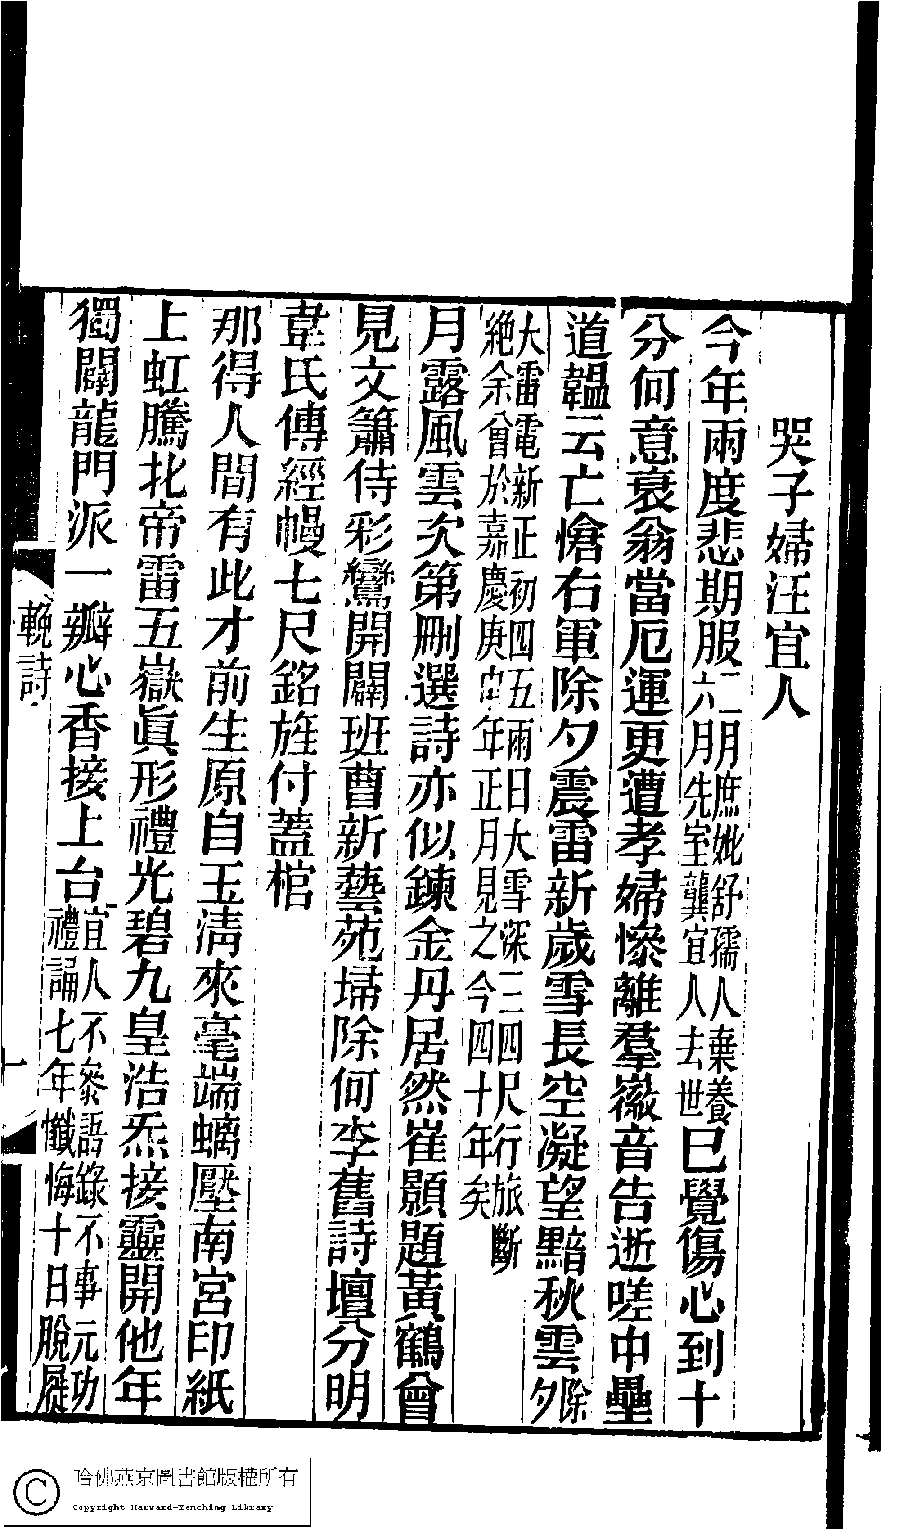 哭子婦汪宜人
今年兩度悲期服二月庶妣舒孺人棄養六月先室龔宜人去世已覺傷心到十
分何意衰翁當厄運更遭孝婦慘離羣徽音告逝嗟中壘
道韞云亡愴右軍除夕震雷新歲雪長空凝望黯秋雲除夕
大雷電新正初四五兩日大雪深三四尺行旅斷
絶余曾於嘉慶庚申年正月見之今四十年矣
月露風雲次第刪選詩亦似鍊金丹居然崔顥題黃鶴曾
見文簫侍彩鸞開闢班曹新藝苑埽除何李舊詩壇分明
韋氏傳經幔七尺銘旌付蓋棺
那得人間有此才前生原自玉淸來毫端螭壓南宮印紙
上虹騰北帝雷五嶽眞形禮光碧九皇浩炁接靈開他年
獨闢龍門派一瓣心香接上台宜人不參語錄不事元功禮誦七年懺悔十日脫屣
輓詩
十
哈佛燕京圖書館版權所有
Copyright Harvard-Yenching Library